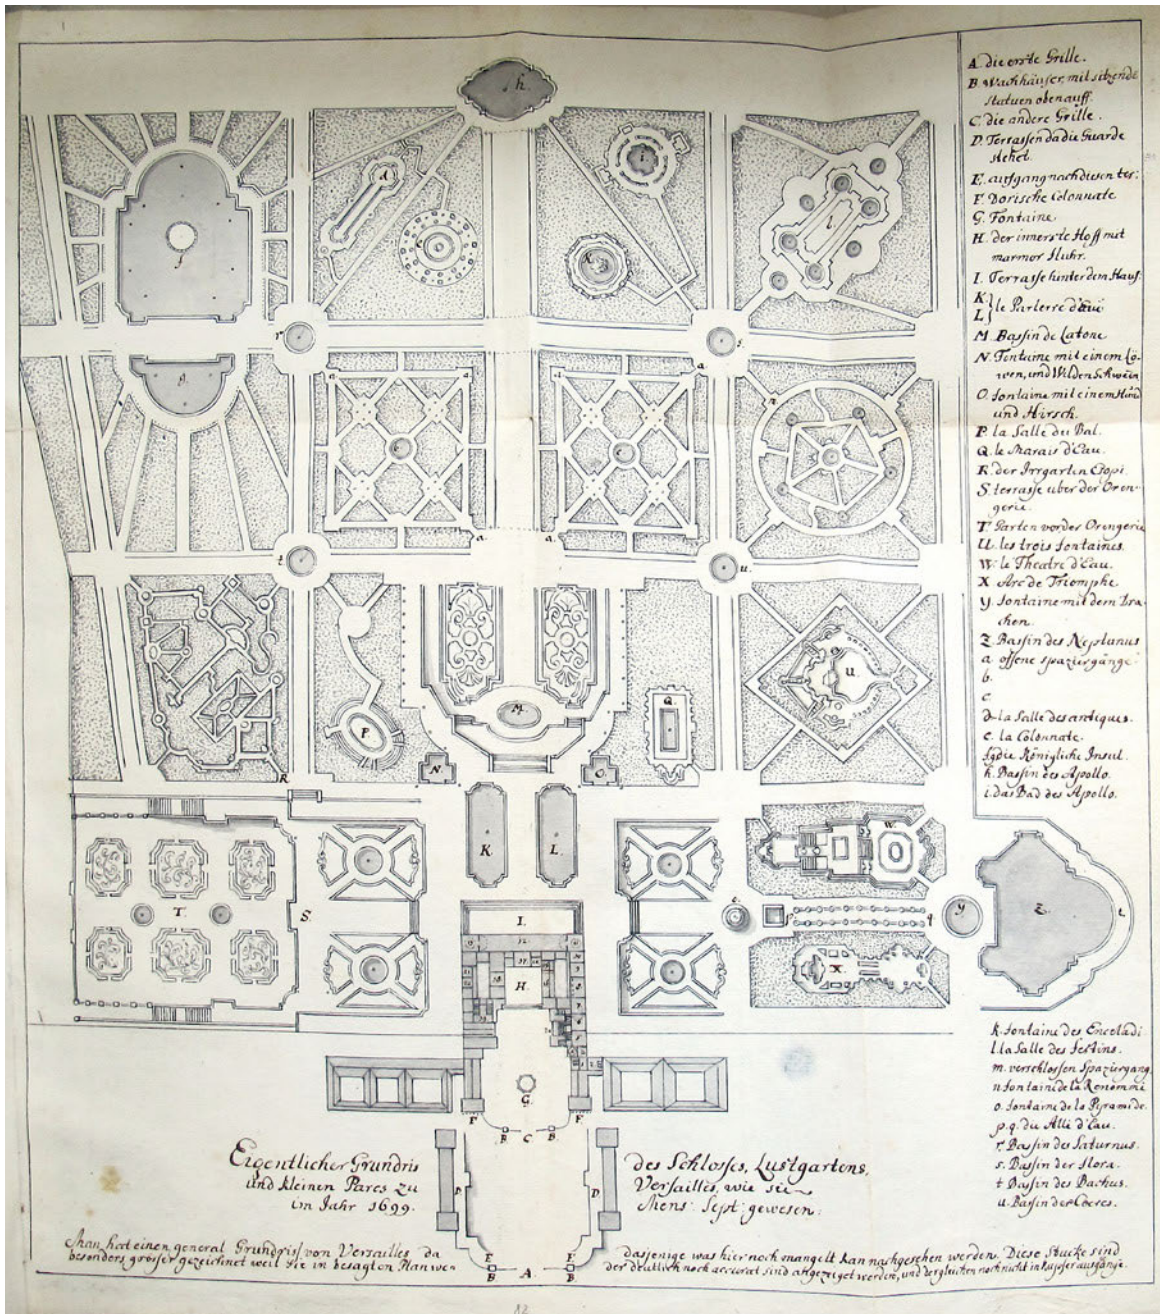 A. die erste Grille.
B. Wachhäuser, mit sitzende
Statuen oben auff.
C. die andere Grille.
D. Terrassen da die Guarde
stehet.
E. aufgang nach diesen ter:
F. Dorische Colonnate
G. Fontaine
H. der innerste Hoff mit
marmor fluhr.
I. Terrasse hinter dem Hauß.
K.
L. } le Parterre d'Eau
M. Bassin de Latone
N. Fontaine mit einem Lö-
wen, und Wilden Schwein
O. fontaine mit einem Hund
und Hirsch.
P. la Salle du Bal.
Q. le Marais d'Eau.
R. der Irrgarten
S. terrasse über der Oren-
gerie.
T. Garten vor der Orengerie
U. les trois fontaines.
W. le Theatre d'Eau.
X. Arc de Triomphe
Y. fontaine mit dem Dra-
chen.
Z. Bassin des Neptunus
a. offene spaziergänge
b.
c.
d. la Salle des antiques.
e. la Colonnate.
fg die Königliche Insul.
h. Bassin des Apollo.
i. das Bad des Apollo.
k. fontaine des Enceladi
l. la Salle des festins.
m. verschlossen Spaziergang
n. fontaine de la Renommé
o. fontaine de la Pyramide.
p.q. du Allé d'Eau.
r. Bassin des Saturnus.
s. Bassin der Flora.
t. Bassin des Bachus.
u. Bassin der Ceres.
Eigentlicher Grundris des Schlosses, Lustgartens,
und kleinen Parcs zu Versailles, wie sie
im Jahr 1699. Mens: Sept: gewesen.
Man hat einen general Grundris von Versailles da dasjenige was hier noch mangelt kan nachgesehen werden. Diese Stucke sind
besonders grösser gezeichnet weil sie in besagten Plan we- der deutlich noch accurat sind angezeiget worden, und dergleichen noch nicht in Kupfer ausgänge.